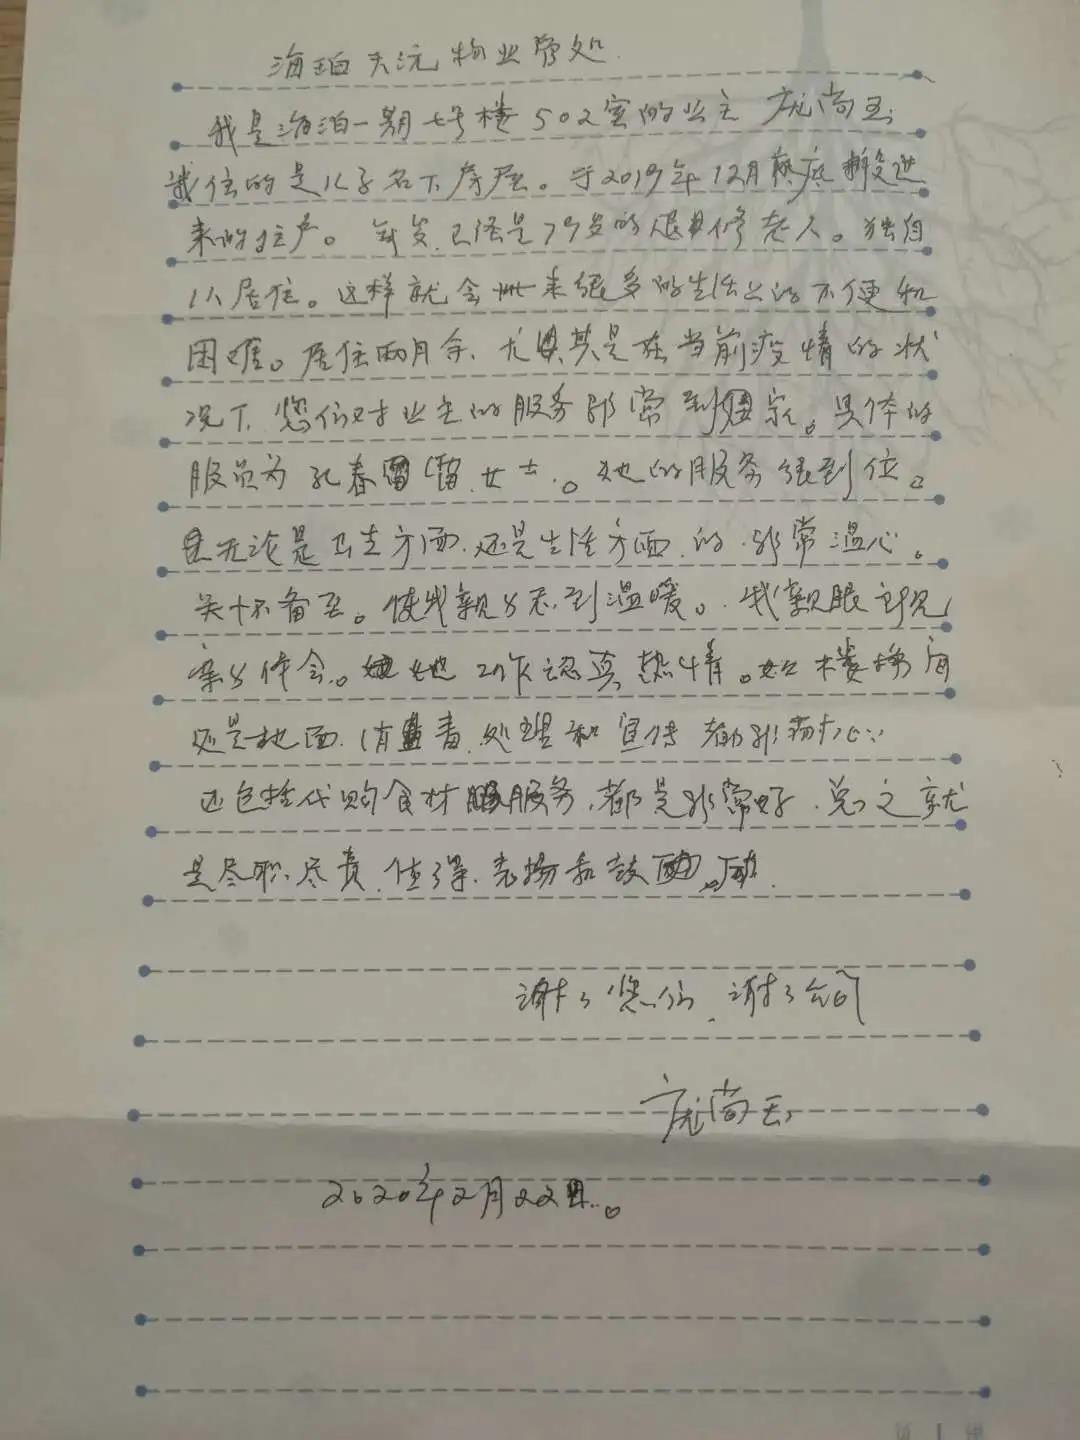 海珀天沅物业管处
我是海泊一期七号楼502室的业主 庞尚玉
我住的是儿子名下房屋。于2019年12月底搬进
来的住户。年岁已经是79岁的退休老人。独自
1人居住。这样就会来很多的生活上的不便和
困难。居住两月余、尤其是在当前疫情的状
况下、您们对业主的服务非常到家。具体的
服员为孔春蕾女士。她的服务很到位。
无论是卫生方面、还是生活方面、的、非常温心。
关怀备至。使我亲身感到温暖。我亲眼所见
亲身体会。她工作认真热情。如楼梯间
还是地面、消毒处理和宣传都非常
还包括代购食材服务、都是非常好、总之就
是尽职、尽责、值得、表扬和鼓励。
谢了您们、谢了公司
庞尚玉
2020年2月22日